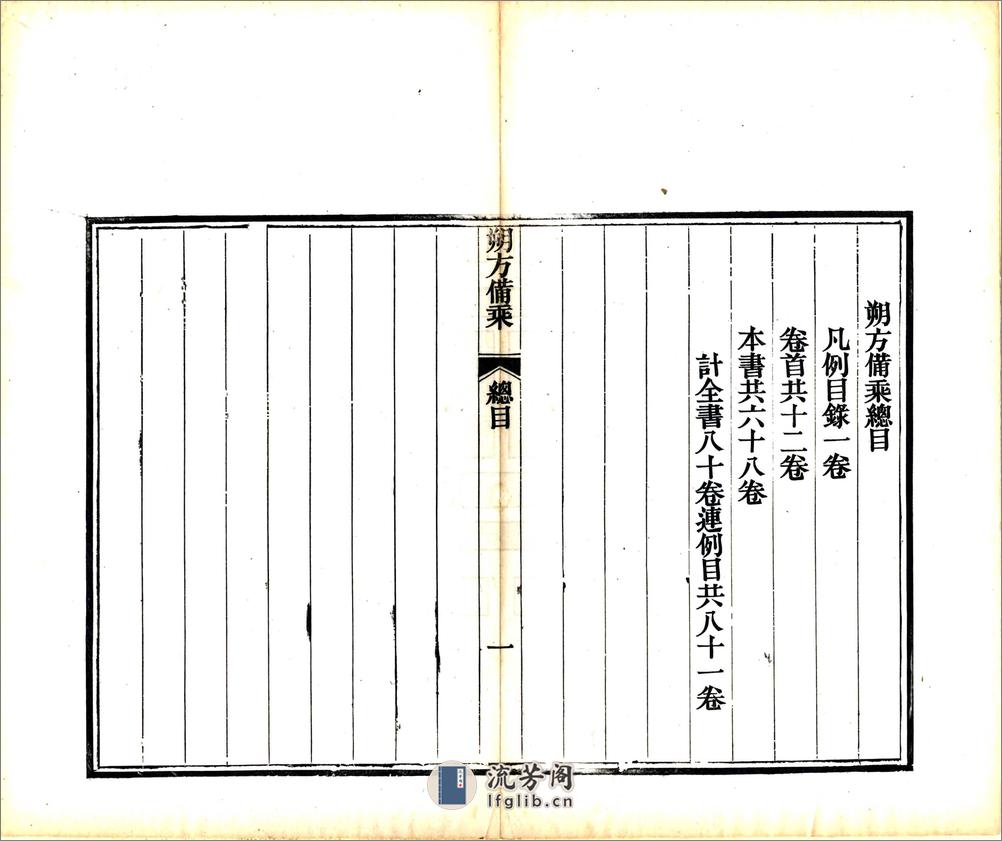 朔方備乘總目
凡例目錄一卷
卷首共十二卷
本書共六十八卷
計全書八十卷連例目共八十一卷
朔方備乘
總目
一
流芳阁
lfglib.cn